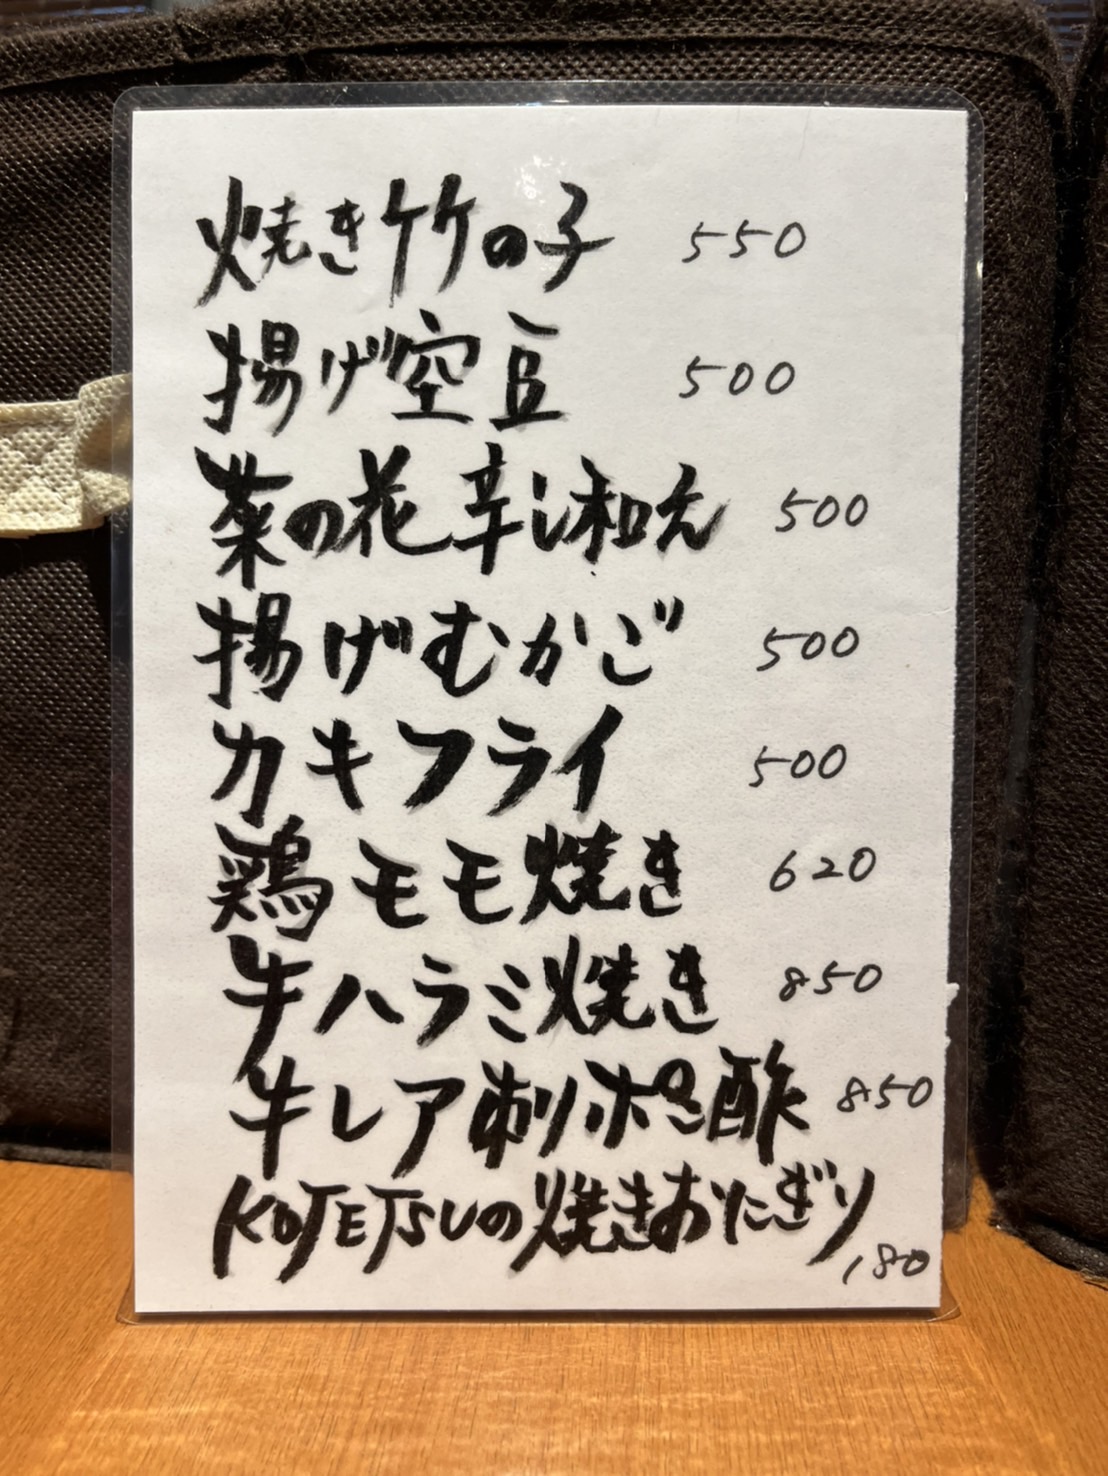 焼き竹の子 550
揚げ空豆 500
菜の花辛し和え 500
揚げむかご 500
カキフライ 500
鶏モモ焼き 620
牛ハラミ焼き 850
牛レア刺ポン酢 850
KOTETSUの焼きおにぎり
180